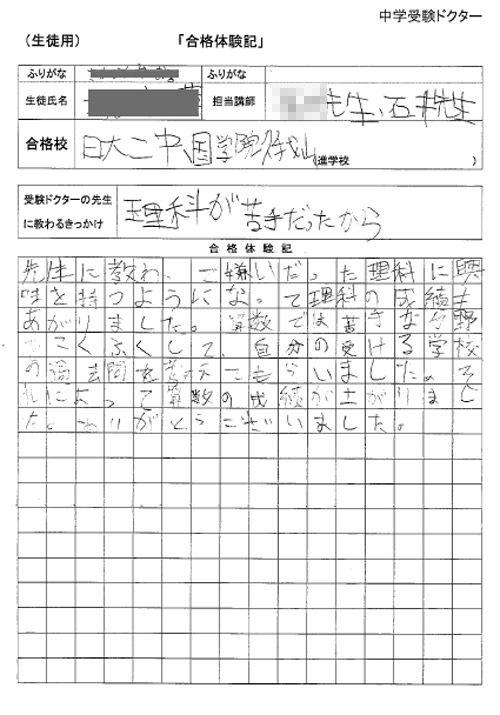 中学受験ドクター
（生徒用）　「合格体験記」
ふりがな　ふりがな
生徒氏名　担当講師　先生、石　先生
合格校　日大二中、国学院久我山（進学校　）
受験ドクターの先生
に教わるきっかけ
理科が苦手だったから
合格体験記
先生に教わって嫌いだった理科に興
味を持つようになって理科の成績も
あがりました。算数では苦手な分野
をこくふくして、自分の受ける学校
の過去問を教えてもらいました。そ
れによって算数の成績が上がりまし
た。ありがとうございました。